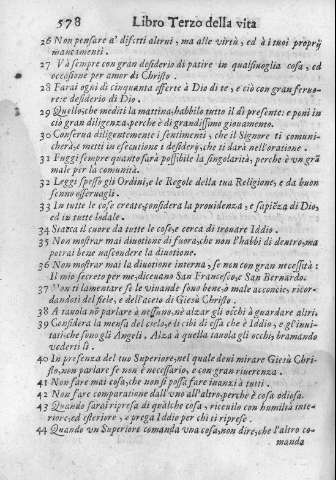 578 Libro Terzo della vita
26 Non pensare a' difetti alrui, ma alle virtù, ed à i tuoi proprij
mancamenti.
27 Và sempre con gran desiderio di patire in qualsiuoglia cosa, ed
occasione per amor di Christo.
28 Farai ogni dì cinquanta offerte à Dio di te, e ciò con gran feruo-
re e desiderio di Dio.
29 Quello, che mediti la mattina, habbilo tutto il dì presente: e poni in
ciò gran diligenza, perche è di grandissimo giouamento.
30 Conserua diligentemente i sentimenti, che il Signore ti comuni-
cherà, e metti in esecutione i desiderij, che ti darà nell'oratione.
31 Fuggi sempre quanto sarà possibile la singolarità, perche è vn grã
male per la comunità.
32 Leggi spesso gli Ordini, e le Regole della tua Religione, e da buon
senno osseruagli.
33 In tutte le cose create, considera la prouidenza, e sapiẽza di Dio,
ed in tutte lodale.
34 Stacca il cuore da tutte le cose, e cerca di trouare Iddio.
35 Non mostrar mai diuotione di fuora, che non l'habbi di dentro, ma
potrai bene nascondere la diuotione.
36 Non mostrar mai la diuotione interna, se non con gran necessità:
Il mio secreto per me, diceuano San Francesco, e San Bernardo.
37 Non ti lamentare se le viuande sono bene, ò male acconcie, ricor-
dandoti del fiele, e dell'aceto di Giesù Christo.
38 A tauola nõ parlare à nessuno, nè alzar gli occhi à guardare altri.
39 Considera la mensa del cielo, e li cibi di essa che è Iddio, e gl'inui-
tati, che sono gli Angeli. Alza à quella tauola gli occhi, bramando
vederti lì.
40 In presenza del tuo Superiore, nel quale deui mirare Giesù Chri-
sto, non parlare se non è necessario, e con gran riuerenza.
41 Non fare mai cosa, che non si possa fare inanzi à tutti.
42 Non fare comparatione dall'vno all'altro, perche è cosa odiosa.
43 Quando sarai ripreso di qualche cosa, riceuilo con humiltà inte-
riore, ed esteriore, e prega Iddio per chi ti riprese.
44 Quando vn Superiore comanda vna cosa, non dire, che l'altro co-
manda